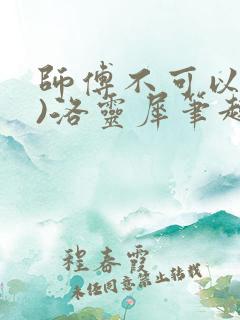 師傅不可以
)洛靈犀筆趣
程春霞
未经同意禁止转载